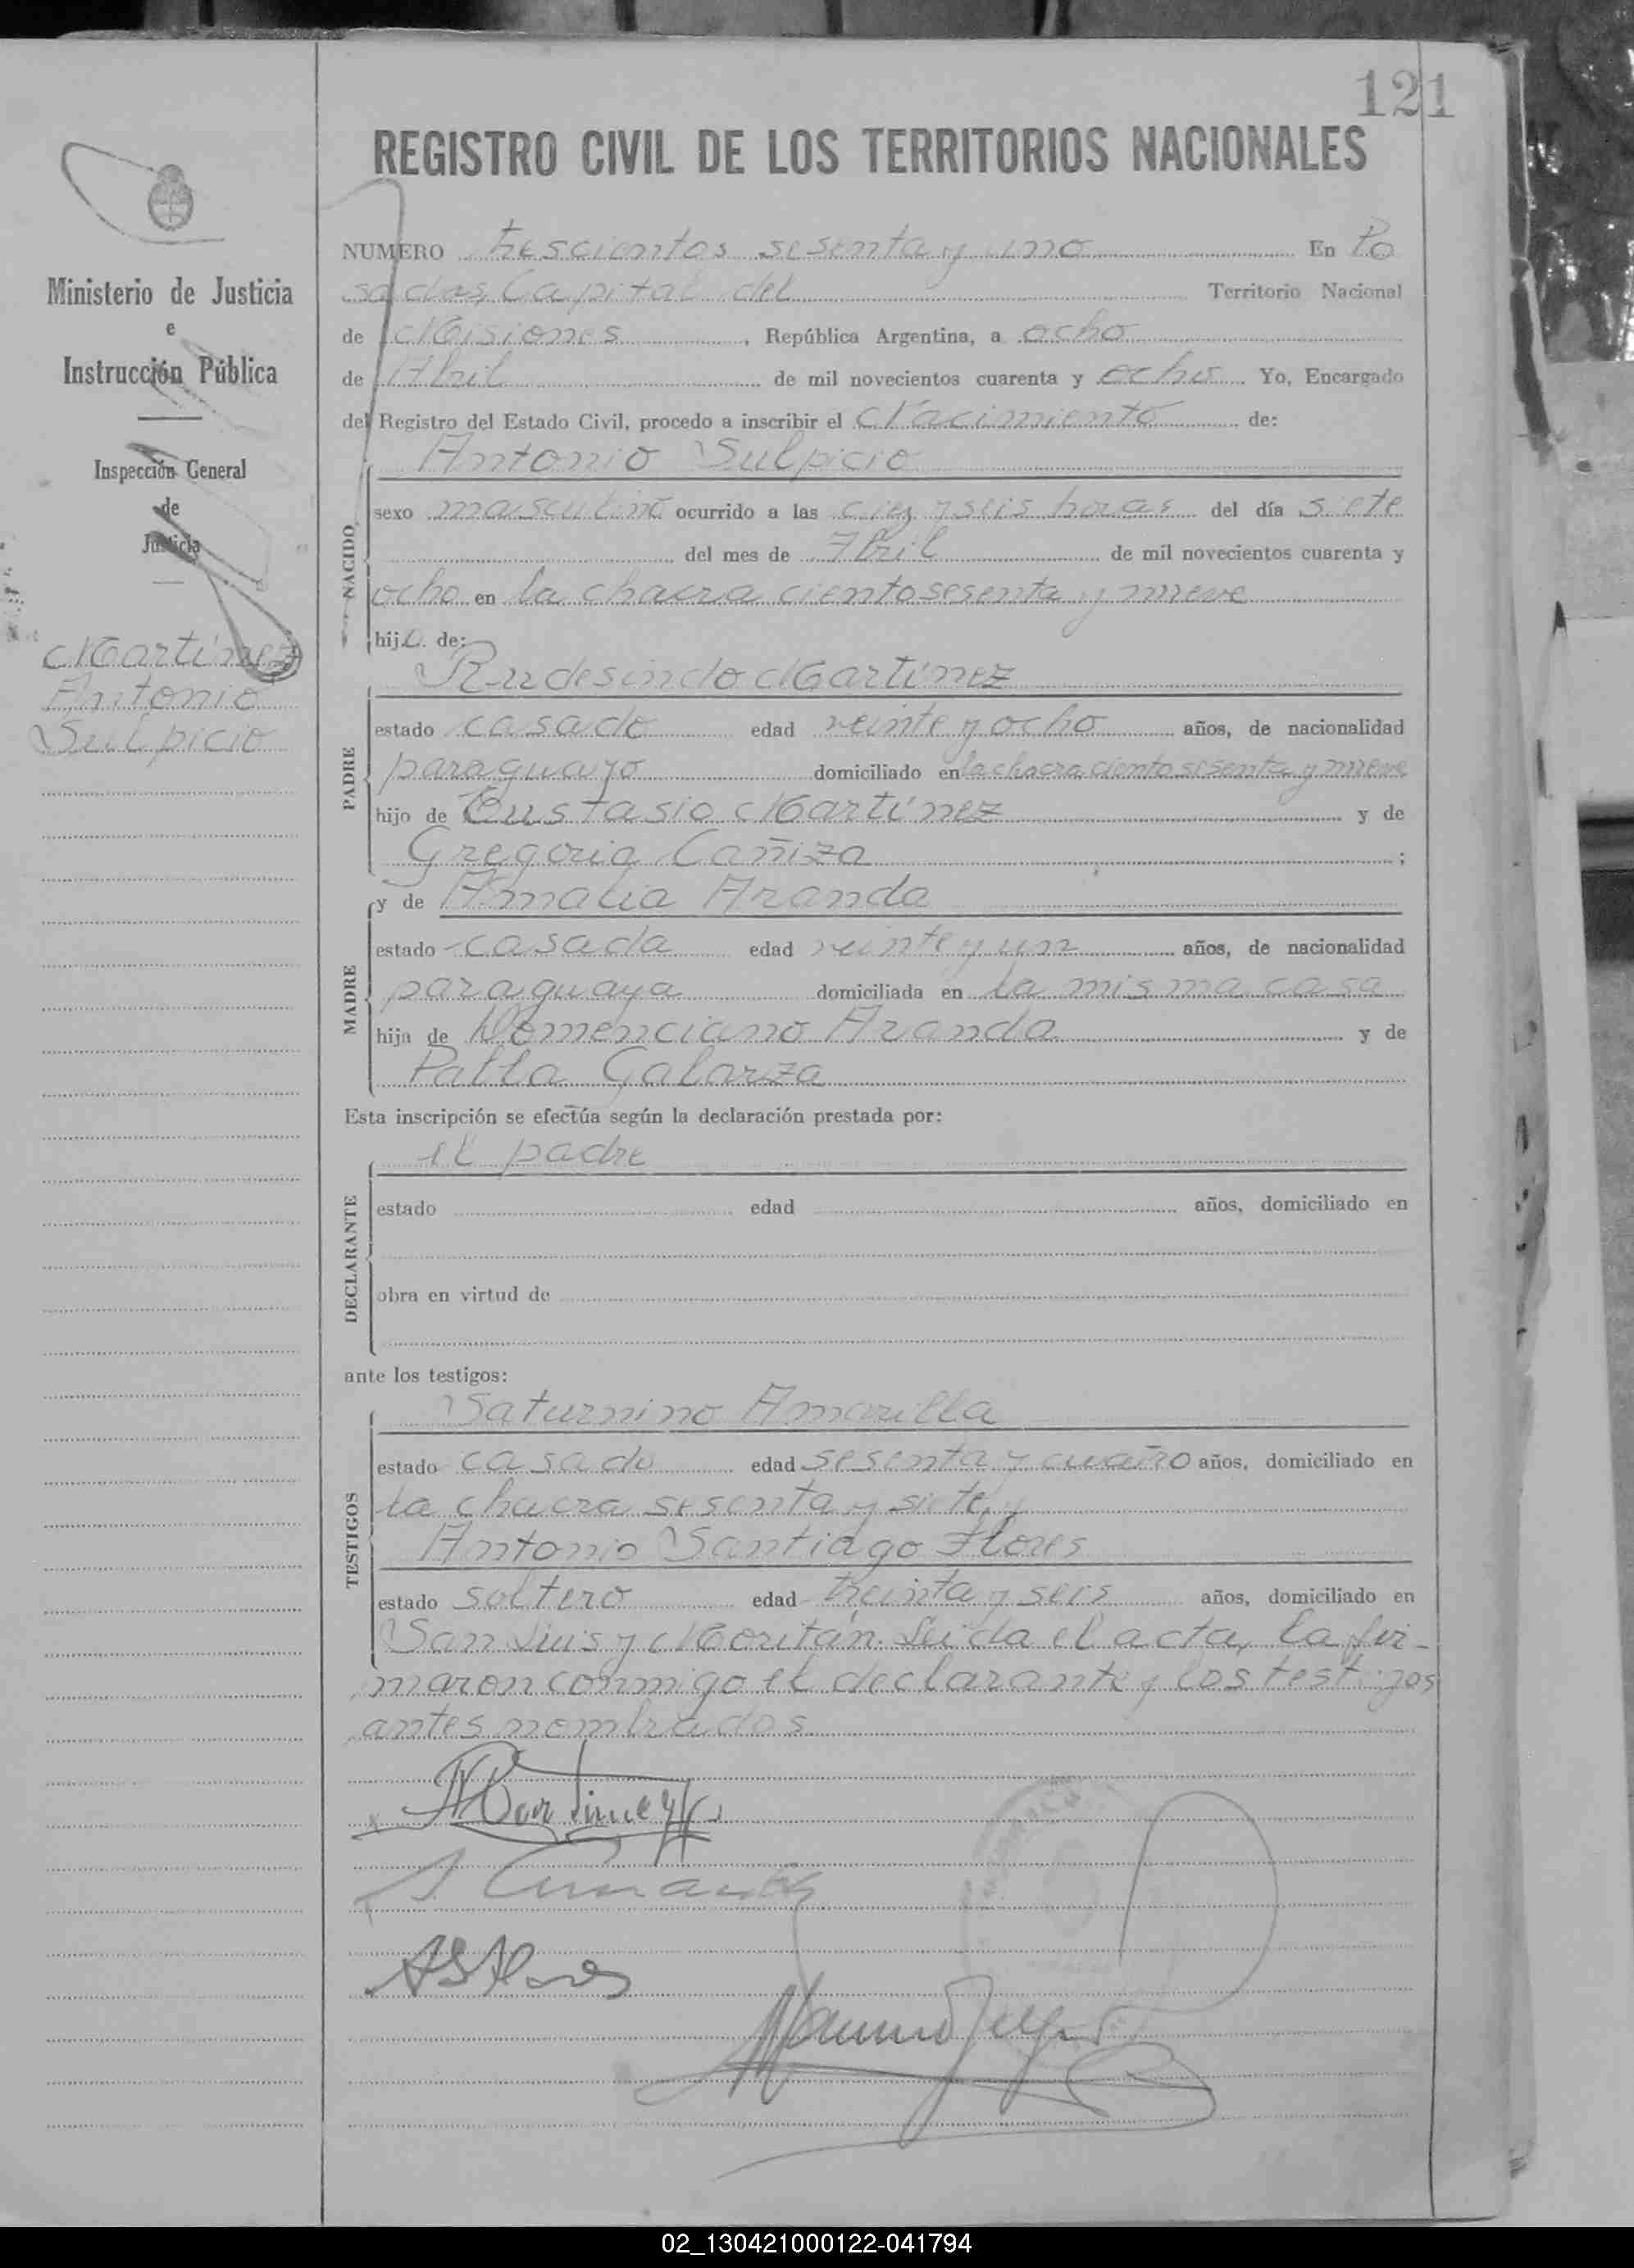 121
REGISTRO CIVIL DE LOS TERRITORIOS NACIONALES
Ministerio de Justicia
e
Instrucción Pública
Inspección General
de
Justicia
Martínez
Antonio
Sulpicio
NUMERO trescientos sesenta y uno En Po
sadas, Capital del Territorio Nacional
de Misiones, República Argentina, a ocho
de Abril de mil novecientos cuarenta y ocho Yo, Encargado
del Registro del Estado Civil, procedo a inscribir el Nacimiento de:
Antonio Sulpicio
NACIDO
sexo masculino ocurrido a las diez y seis horas del día siete
del mes de Abril de mil novecientos cuarenta y
ocho en la chacra ciento sesenta y nueve
hijo de:
Rudesindo Martínez
PADRE
estado casado edad veinte y ocho años, de nacionalidad
paraguayo domiciliado en la chacra ciento sesenta y nueve
hijo de Eustasio Martínez y de
Gregoria Cañiza ;
y de Amalia Aranda
MADRE
estado casada edad veinte y un años, de nacionalidad
paraguaya domiciliada en la misma casa
hija de Aranda y de
Pabla Galarza
Esta inscripción se efectúa según la declaración prestada por:
el padre
DECLARANTE
estado edad años, domiciliado en
obra en virtud de
ante los testigos:
Saturnino Amarilla
TESTIGOS
estado casado edad sesenta y cuatro años, domiciliado en
la chacra sesenta y siete, y
Antonio Santiago Flores
estado soltero edad treinta y seis años, domiciliado en
San Luis y Moritán. Leída el acta, la fir-
maron conmigo el declarante y los testigos
antes nombrados
RMartinez
ASFlores
02_130421000122-041794